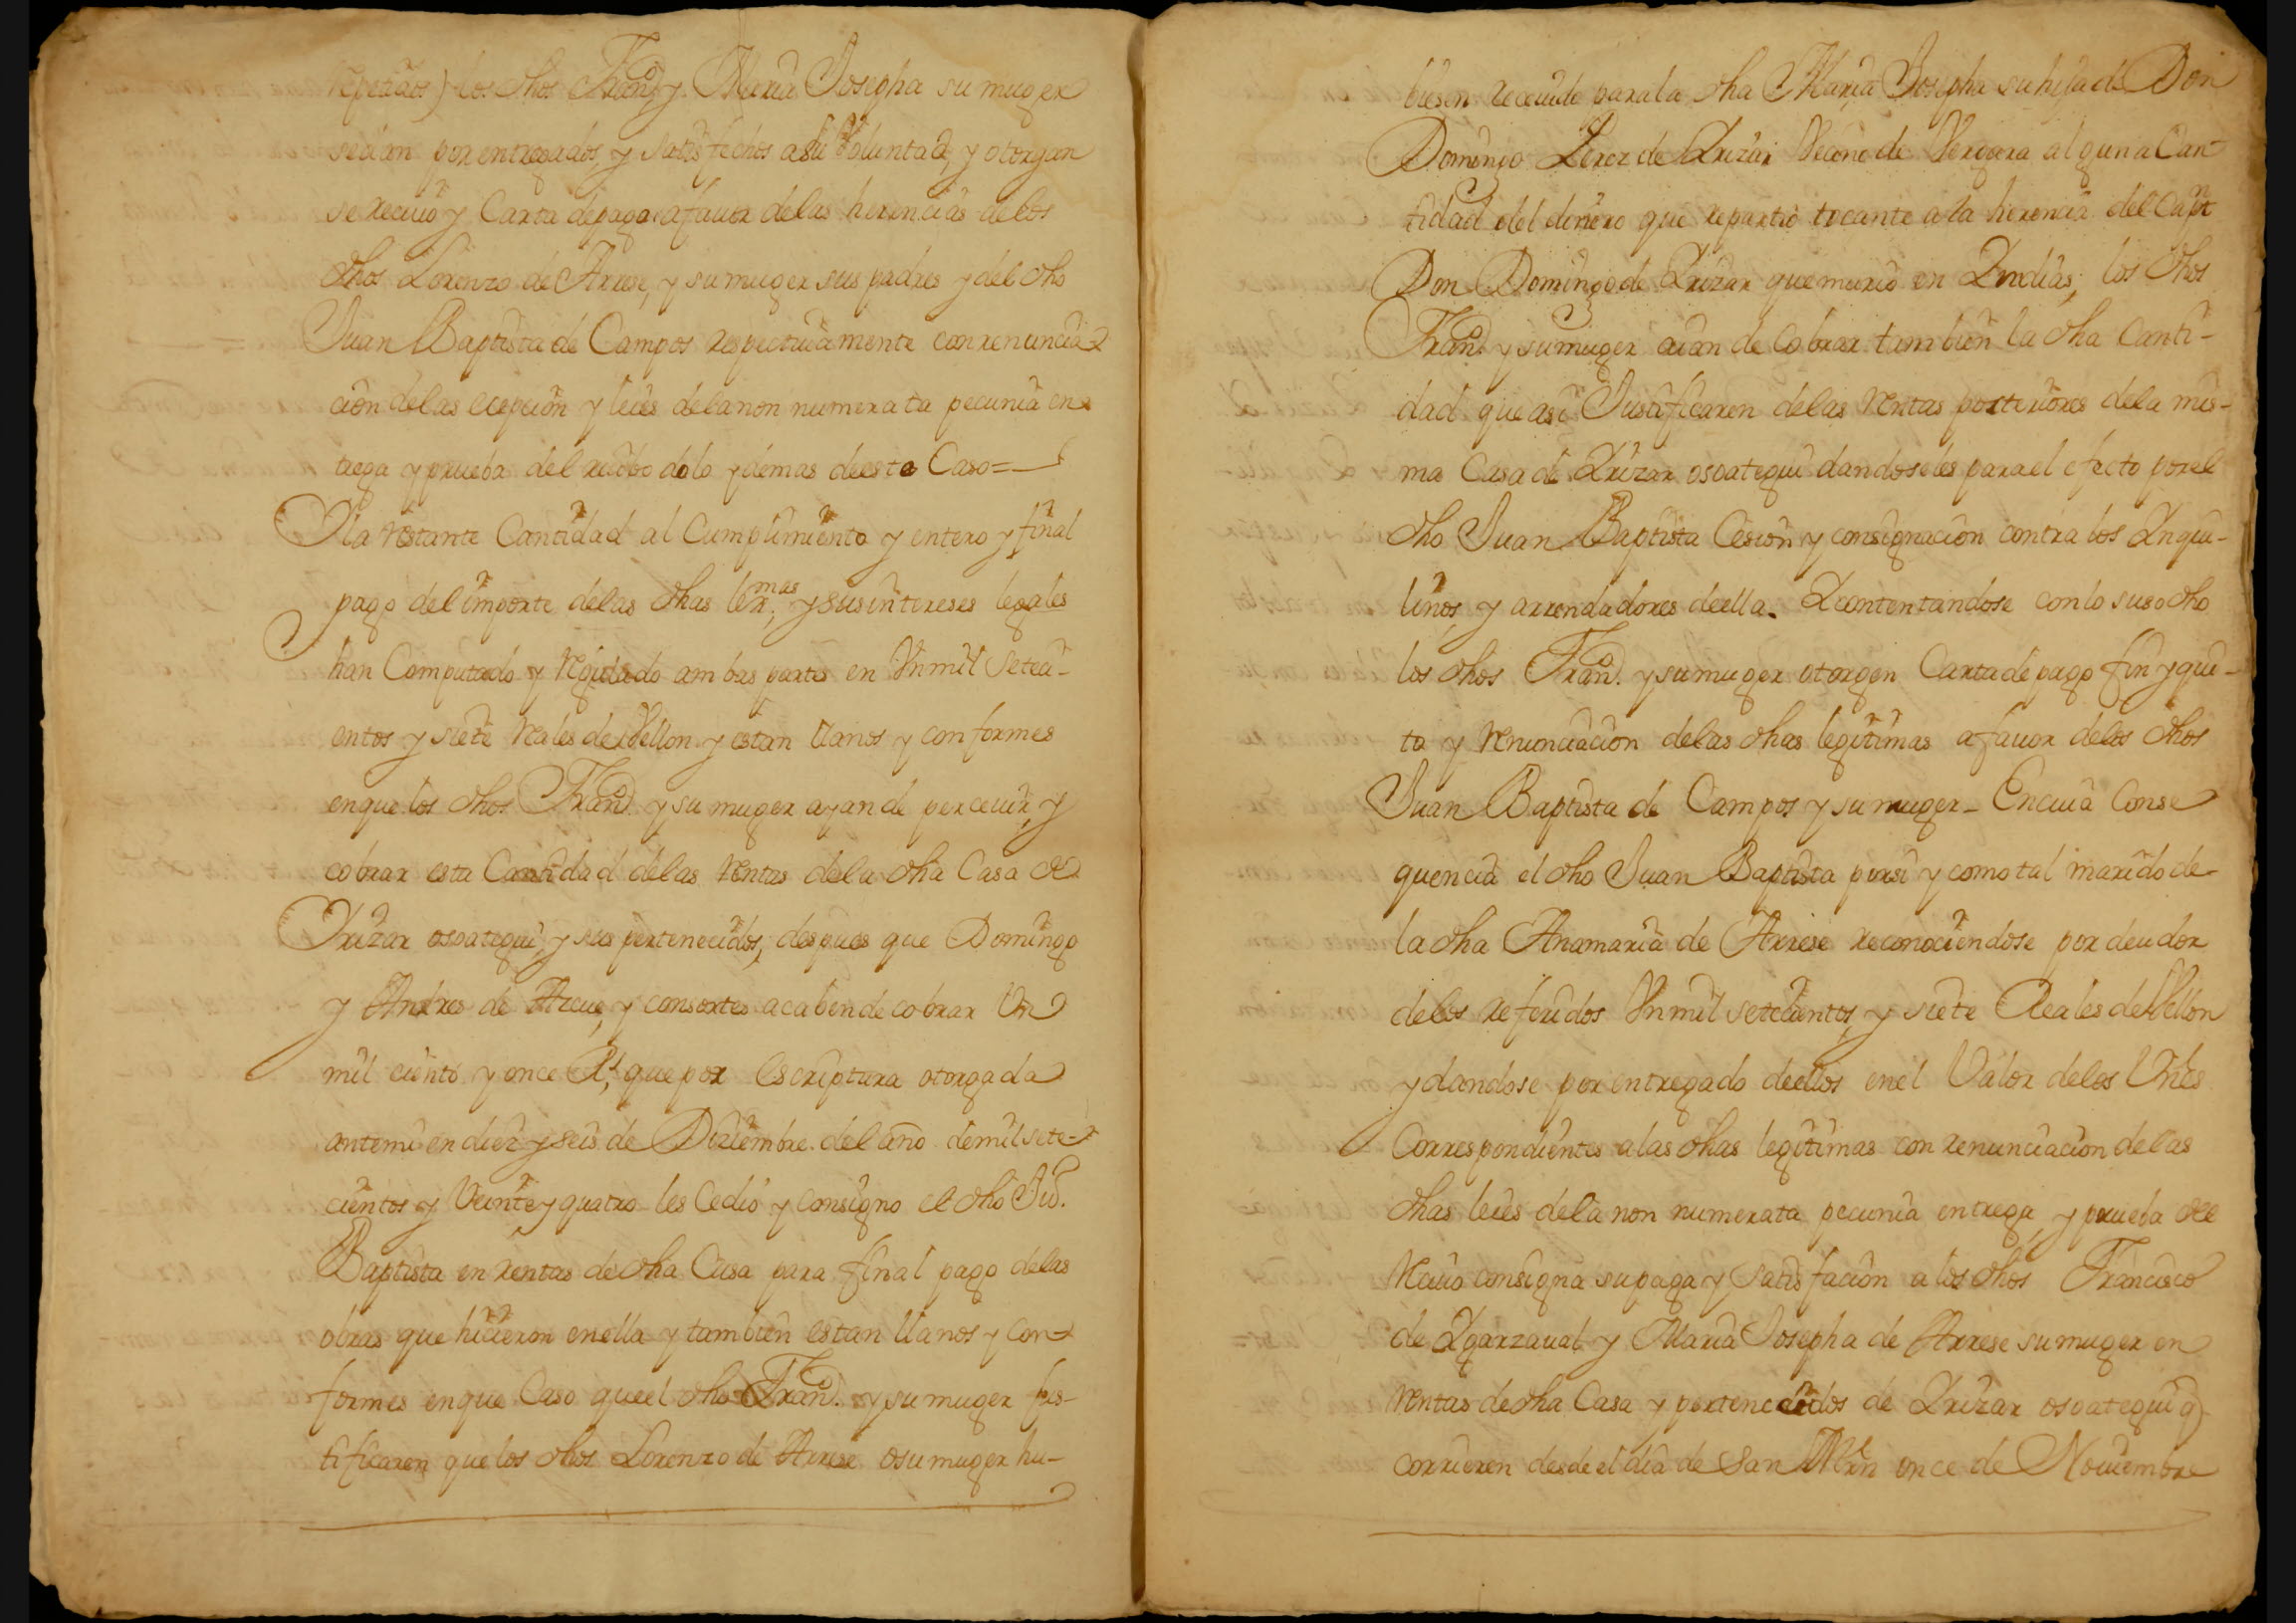 repetidos) los dhos Fran.co y Maria Josepha su muger
se dan por entregados, y satisfechos a su Voluntad, y otorgan
se reciuo y Carta de pago a fauor de las herencias de los
dhos Lorenzo de Arrese, y su muger sus padres y del dho
Juan Baptista de Campos respectiuamente con renuncia-
cion de las ecepcion y leies de la non numerata pecunia en-
trega y prueba del reciuo dolo y demas de este Caso=
Y la restante Cantidad al Cumplimiento y entero y final
pago del importe de las dhas lex.mas y sus intereses legales
han Computado y Regulado ambas partes en Vn mil Seteci-
entos y siete Reales de Vellon y estan llanos y conformes
en que los dhos Fran.co y su muger ayan de perceuir, y
cobrar esta Cantidad de las Rentas de la dha Casa de
Yrizar osoategui, y sus pertenecidos, despues que Domingo
y Andres de Azcue, y consortes acaben de cobrar Vn
mil ciento y once R.s que por Escriptura otorgada
ante mi en diez y seis de Diziembre del año de mil sete-
cientos y Veinte y quatro les Cedio y consigno el dho Ju.o
Baptista en rentas de dha Casa para final pago de las
obras que hicieron en ella y tambien estan llanos y con-
formes en que Caso que el dho Fran.co y su muger jus-
tificaren que los dhos Lorenzo de Arrese o su muger hu-
biesen receuido para la dha Maria Josepha su hija de Don
Domingo Perez de Yrizar Vecino de Vergara alguna Can-
tidad del dinero que repartio tocante a la herencia del Cap.n
Don Domingo de Yrizar que murio en Yndias, los dhos
Fran.co y su muger aian de Cobrar tambien la dha Canti-
dad que asi Justificaren de las Rentas posteriores de la mis-
ma Casa de Yrizar osoategui dandoseles para el efecto por el
dho Juan Baptista Cesion y consignacion contra los Ynqui-
linos, y arrendadores de ella. Y contentandose con lo suso dho
los dhos Fran.co y su muger otorgen Carta de pago fin y qui-
to y Renunciacion de las dhas legitimas a fauor de los dhos
Juan Baptista de Campos y su muger - En cuia Conse
quencia el dho Juan Baptista por si y como tal marido de
la dha Anamaria de Arrese reconociendose por deudor
de los referidos Vn mil setecientos, y siete Reales de Vellon
y dandose por entregado de ellos en el Valor de los Vnes
Correspondientes a las dhas legitimas con renunciacion de las
dhas leies de la non numerata pecunia entrega, y prueba del
Reciuo consigna su paga y satisfacion a los dhos Francisco
de Ygarzaual y Maria Josepha de Arrese su muger en
Rentas de dha Casa y pertenecidos de Yrizar osoategui q
corrieren desde el dia de San Mrn once de Nouiembre